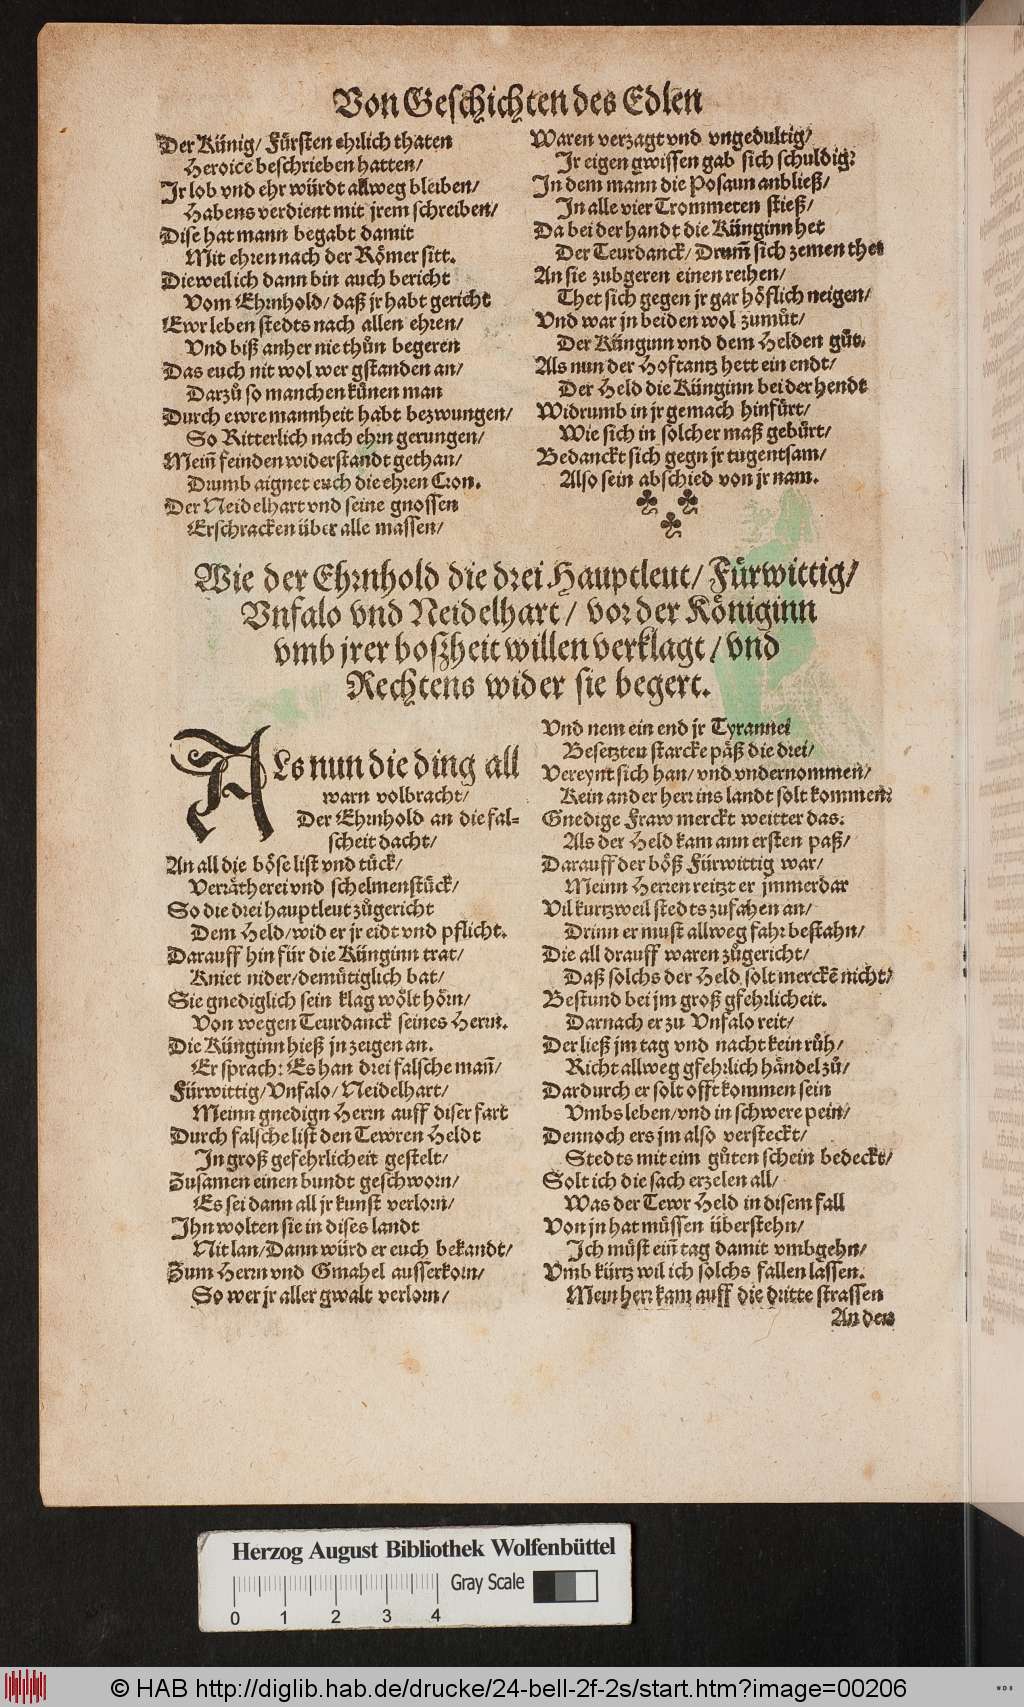 Von Geschichten des Edlen
Der Künig/ Fürsten ehrlich thaten
Heroice beschrieben hatten/
Jr lob vnd ehr würdt allweg bleiben/
Habens verdient mit jrem schreiben/
Dise hat mann begabt damit
Mit ehren nach der Römer sitt.
Dieweil ich dann bin auch bericht
Vom Ehrnhold/ daß jr habt gericht
Ewr leben stedts nach allen ehren/
Vnd biß anher nie thůn begeren
Das euch nit wol wer gstanden an/
Darzů so manchen künen man
Durch ewre mannheit habt bezwungen/
So Ritterlich nach ehrn gerungen/
Mein̄ feinden widerstandt gethan/
Drumb aignet euch die ehren Cron.
Der Neidelhart vnd seine gnossen
Erschracken über alle massen/
Waren verzagt vnd vngedultig/
Jr eigen gwissen gab sich schuldig:
In dem mann die Posaun anbließ/
In alle vier Trommeten stieß/
Da bei der handt die Künginn het
Der Teurdanck/ Drum̄ sich zemen thet
An sie zubgeren einen reihen/
Thet sich gegen jr gar höflich neigen/
Vnd war jn beiden wol zumůt/
Der Künginn vnd dem Helden gůt.
Als nun der Hoftantz hett ein endt/
Der Held die Künginn bei der hendt
Widrumb in jr gemach hinfürt/
Wie sich in solcher maß gebürt/
Bedanckt sich gegn jr tugentsam/
Also sein abschied von jr nam.
Wie der Ehrnhold die drei Hauptleut/ Fürwittig/
Vnfalo vnd Neidelhart/ vor der Königinn
vmb jrer boßheit willen verklagt/ vnd
Rechtens wider sie begert.
ALs nun die ding all
warn volbracht/
Der Ehrnhold an die fal-
scheit dacht/
An all die böse list vnd tück/
Verrätherei vnd schelmenstück/
So die drei hauptleut zůgericht
Dem Held/ wider jr eidt vnd pflicht.
Darauff hin für die Künginn trat/
Kniet nider/ demütiglich bat/
Sie gnediglich sein klag wölt hörn/
Von wegen Teurdanck seines Herrn.
Die Künginn hieß jn zeigen an.
Er sprach: Es han drei falsche man̄/
Fürwittig/ Vnfalo/ Neidelhart/
Meinn gnedign Herrn auff diser fart
Durch falsche list den Tewren Heldt
In groß gefehrlicheit gestelt/
Zusamen einen bundt geschworn/
Es sei dann all jr kunst verlorn/
Ihn wolten sie in dises landt
Nit lan/ Dann würd er euch bekandt/
Zum Herrn vnd Gmahel ausserkorn/
So wer jr aller gwalt verlorn/
Vnd nem ein end jr Tyrannei
Besetzten starcke päß die drei/
Vereynt sich han/ vnd vndernommen/
Kein ander herr ins landt solt kommen:
Gnedige Fraw merckt weitter das:
Als der Held kam ann ersten paß/
Darauff der böß Fürwittig war/
Meinn Herren reitzt er jmmerdar
Vil kurtzweil stedts zufahen an/
Drinn er must allweg fahr bestahn/
Die all drauff waren zůgericht/
Daß solchs der Held solt merckē nicht/
Bestund bei jm groß gfehrlicheit.
Darnach er zu Vnfalo reit/
Der ließ jm tag vnd nacht kein růh/
Richt allweg gfehrlich händel zů/
Dardurch er solt offt kommen sein
Vmbs leben/ vnd in schwere pein/
Dennoch ers jm also versteckt/
Stedts mit eim gůten schein bedeckt/
Solt ich die sach erzelen all/
Was der Tewr Held in disem fall
Von jn hat müssen überstehn/
Ich můst ein̄ tag damit vmbgehn/
Vmb kürtz wil ich solchs fallen lassen.
Mein herr kam auff die dritte strassen
An den
Herzog August Bibliothek Wolfenbüttel
Gray Scale
0 1 2 3 4
© HAB http://diglib.hab.de/drucke/24-bell-2f-2s/start.htm?image=00206